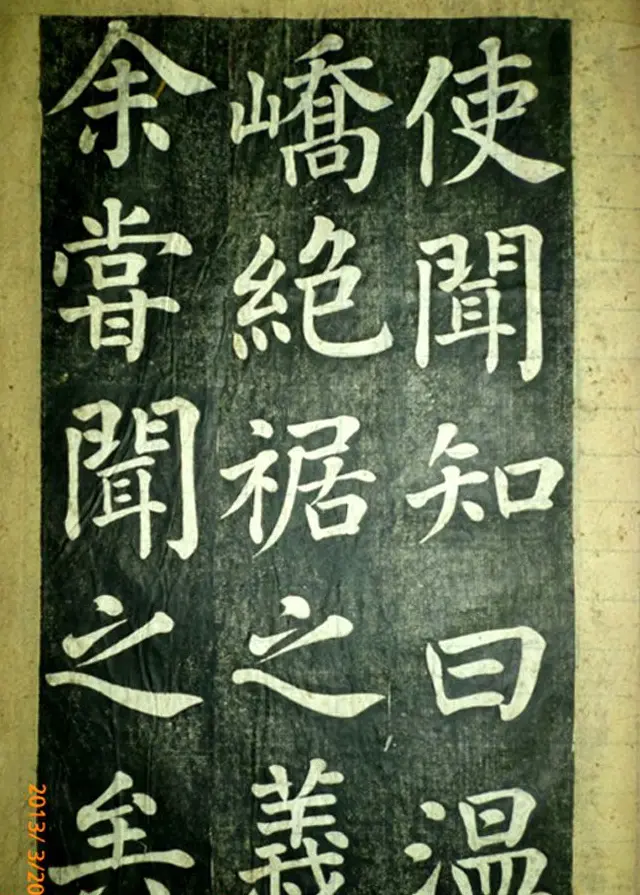 使聞知曰温
嶠絶裾之義
余嘗聞之矣
2013/ 3/20